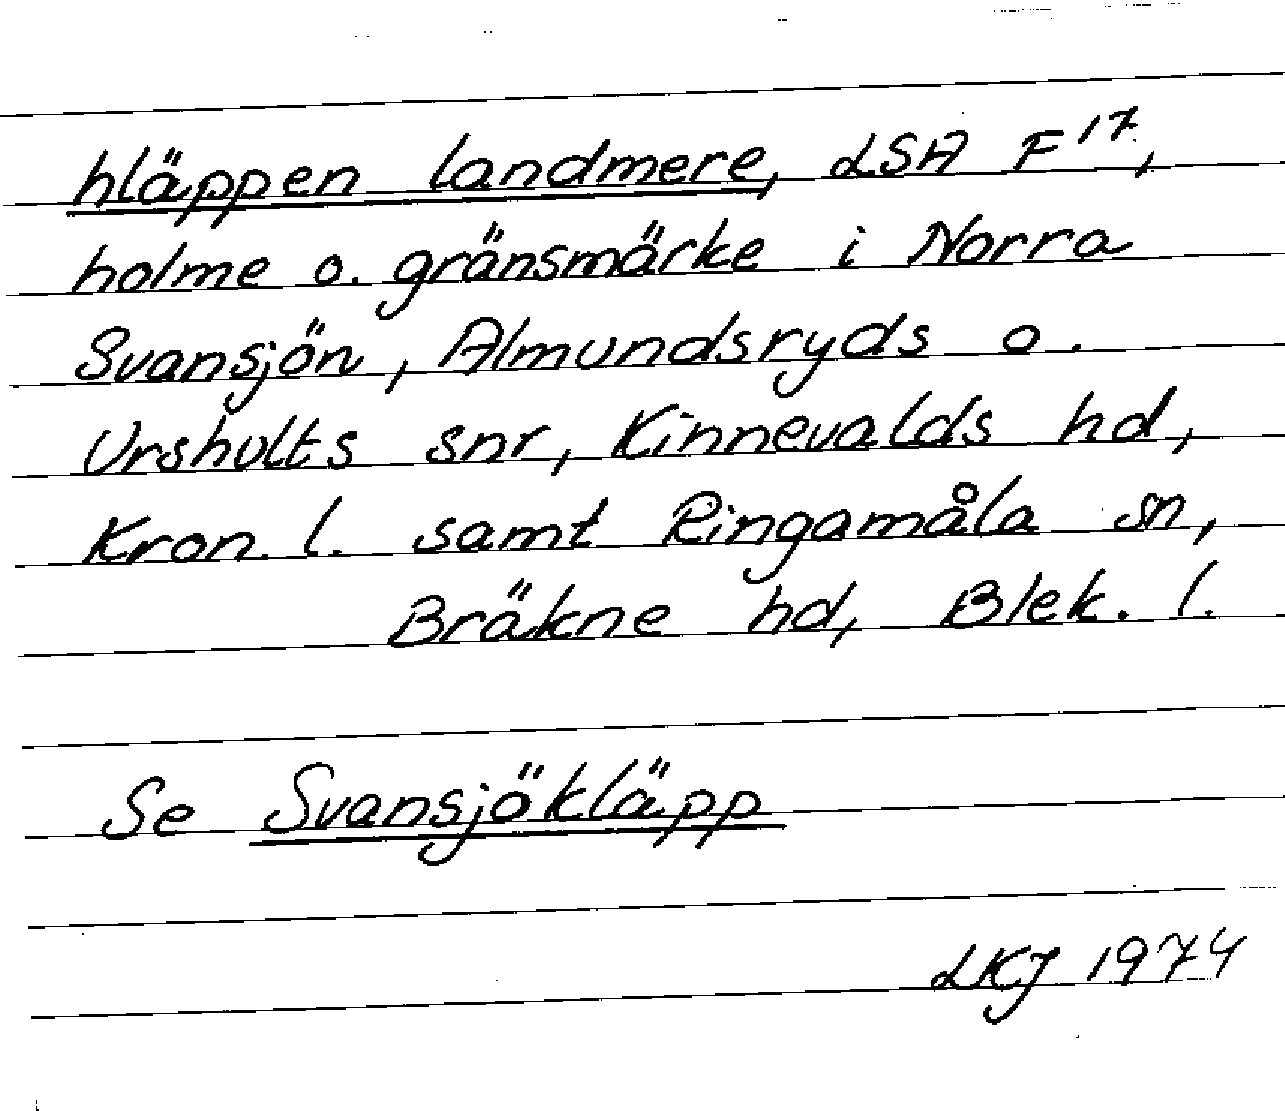 hläppen landmere, LSA F 17,
holme o. gränsmärke i Norra
Svansjön, Almundsryds o.
Urshults snr, Kinnevalds hd,
Kron. l. samt Ringamåla sn,
Bräkne hd, Blek. l.
Se Svansjökläpp
LKJ 1974